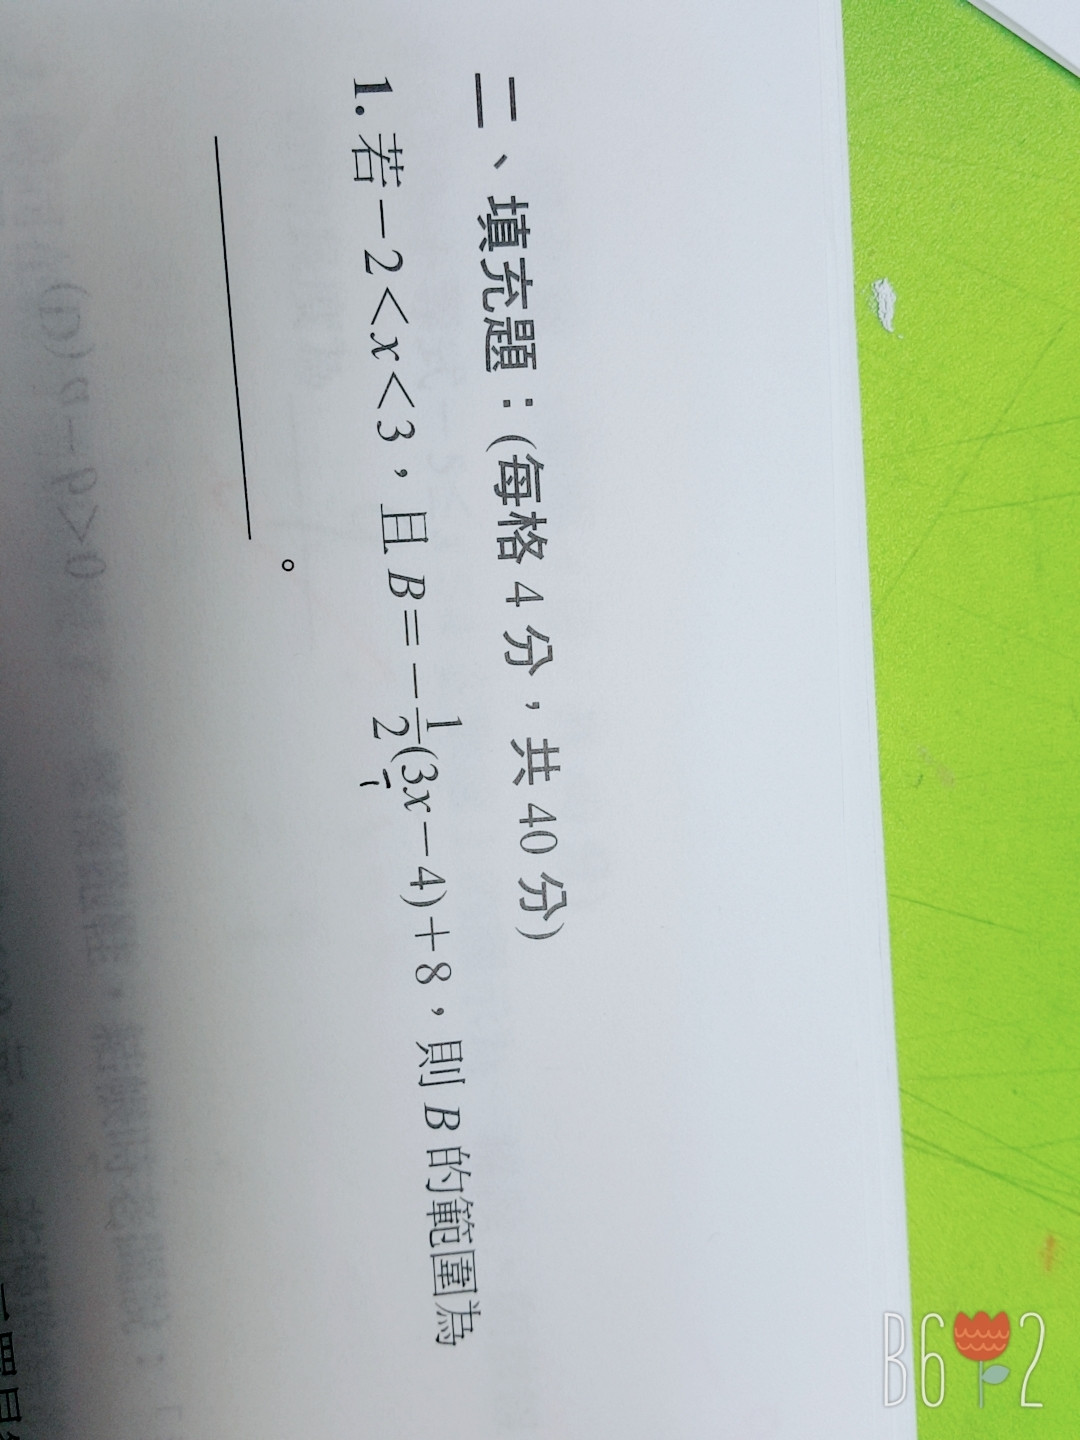 二、填充題：(每格 4 分，共 40 分)
1. 若－2＜x＜3，且 B＝－\frac{1}{2}(3x－4)＋8，則 B 的範圍為
＿＿＿＿＿＿。
B6 2